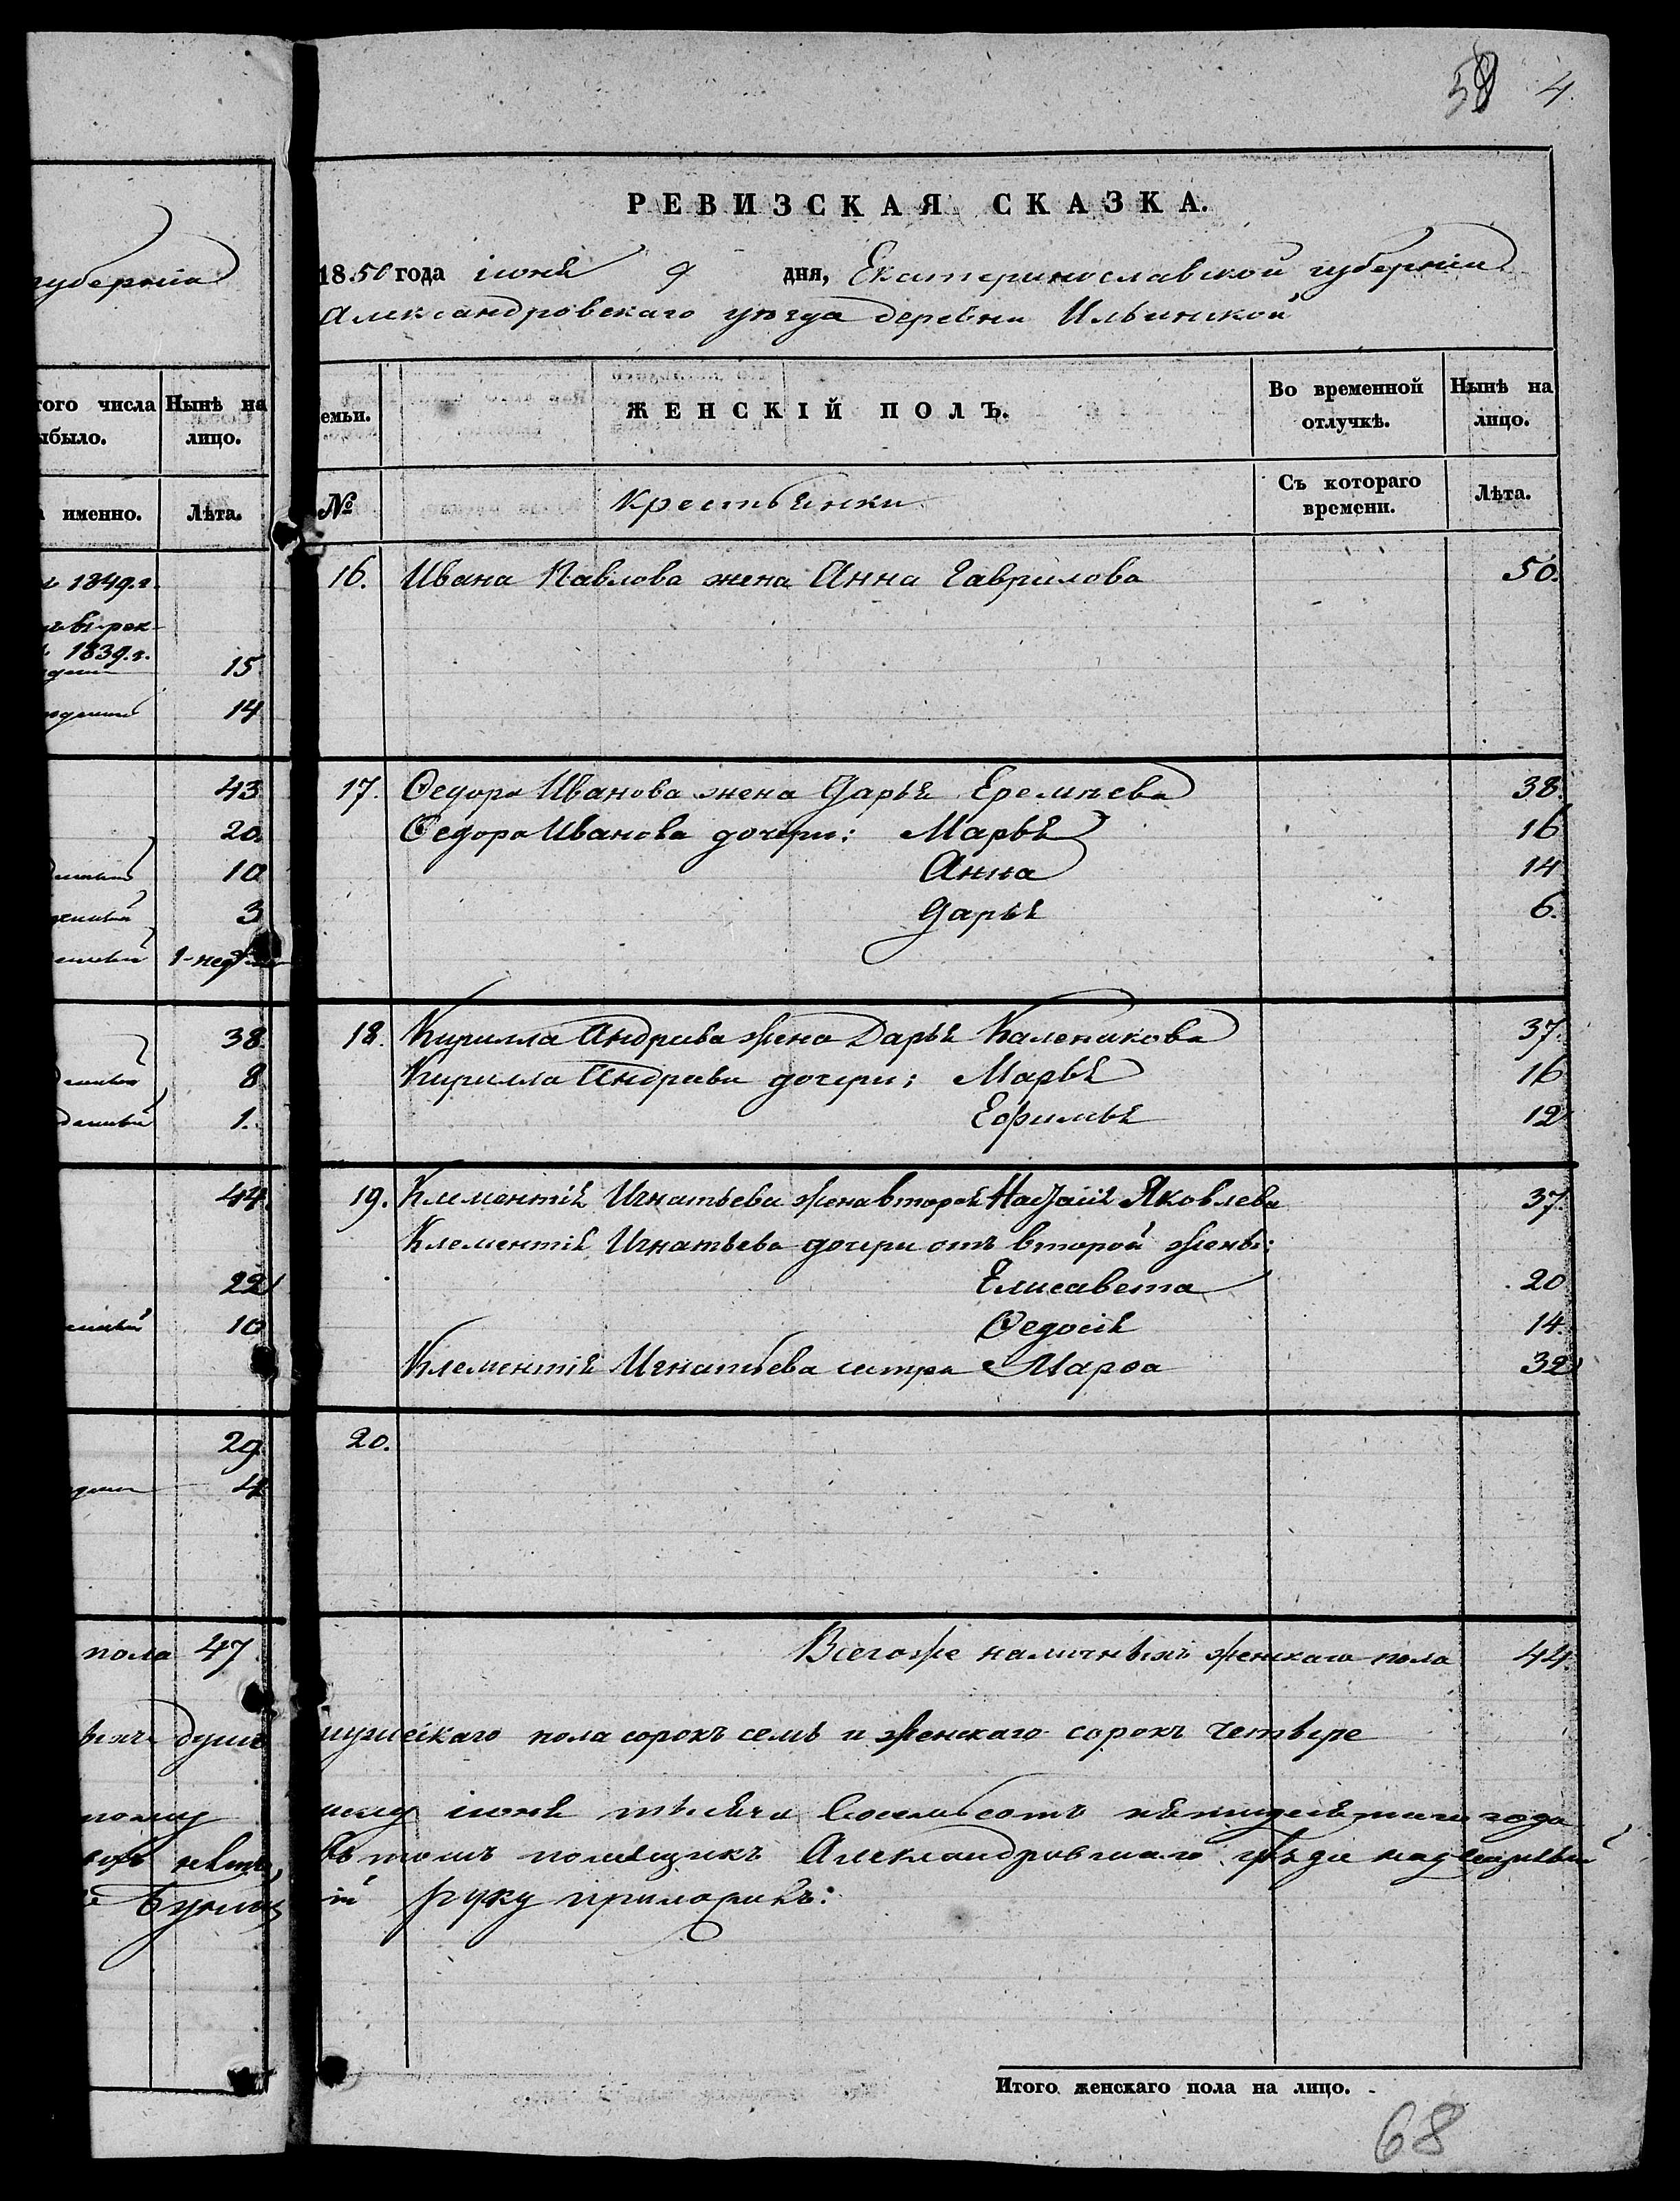 58 4.
РЕВИЗСКАЯ СКАЗКА.
губернiи
1850 года iюня 9 дня, Екатеринославской губернiи
Александровскаго уѣзда деревни Ильинской
того числа
Нынѣ на
было.
лицо.
емьи.
ЖЕНСКIЙ ПОЛЪ.
Во временной
отлучкѣ.
Нынѣ на
лицо.
именно.
Лѣта.
№
Крестьянки
Съ котораго
времени.
Лѣта.
1849.г.
16. Ивана Павлова жена Анна Гаврилова 50.
1839.г.
15
14
43
17. Ѳедора Иванова жена Дарья Еремѣева 38.
20.
Ѳедора Иванова дочери: Марья 16
10
Анна 14
3
Дарья 6.
38.
18. Кирилла Андрѣева жена Дарья Каленикова 37.
8
Кирилла Андрѣева дочери: Марья 16
1.
Ефимья 12
44.
19. Климентiя Игнатьева жена вторая Наталiя Яковлева 37.
Клементiя Игнатьева дочери отъ второй жены:
22
Елисавета 20
10
Ѳедосiя 14.
Клементiя Игнатьева сестра Марѳа 32
29
20.
4
пола 47
Всегоже наличныхъ женскаго пола 44.
душъ мужескаго пола сорокъ семь и женскаго сорокъ четыре
iюня тысяча восемьсотъ пятидесятаго года
въ томъ помѣщикъ Александровскаго уѣзда надворный
руку приложилъ:
Итого женскаго пола на лицо.
68